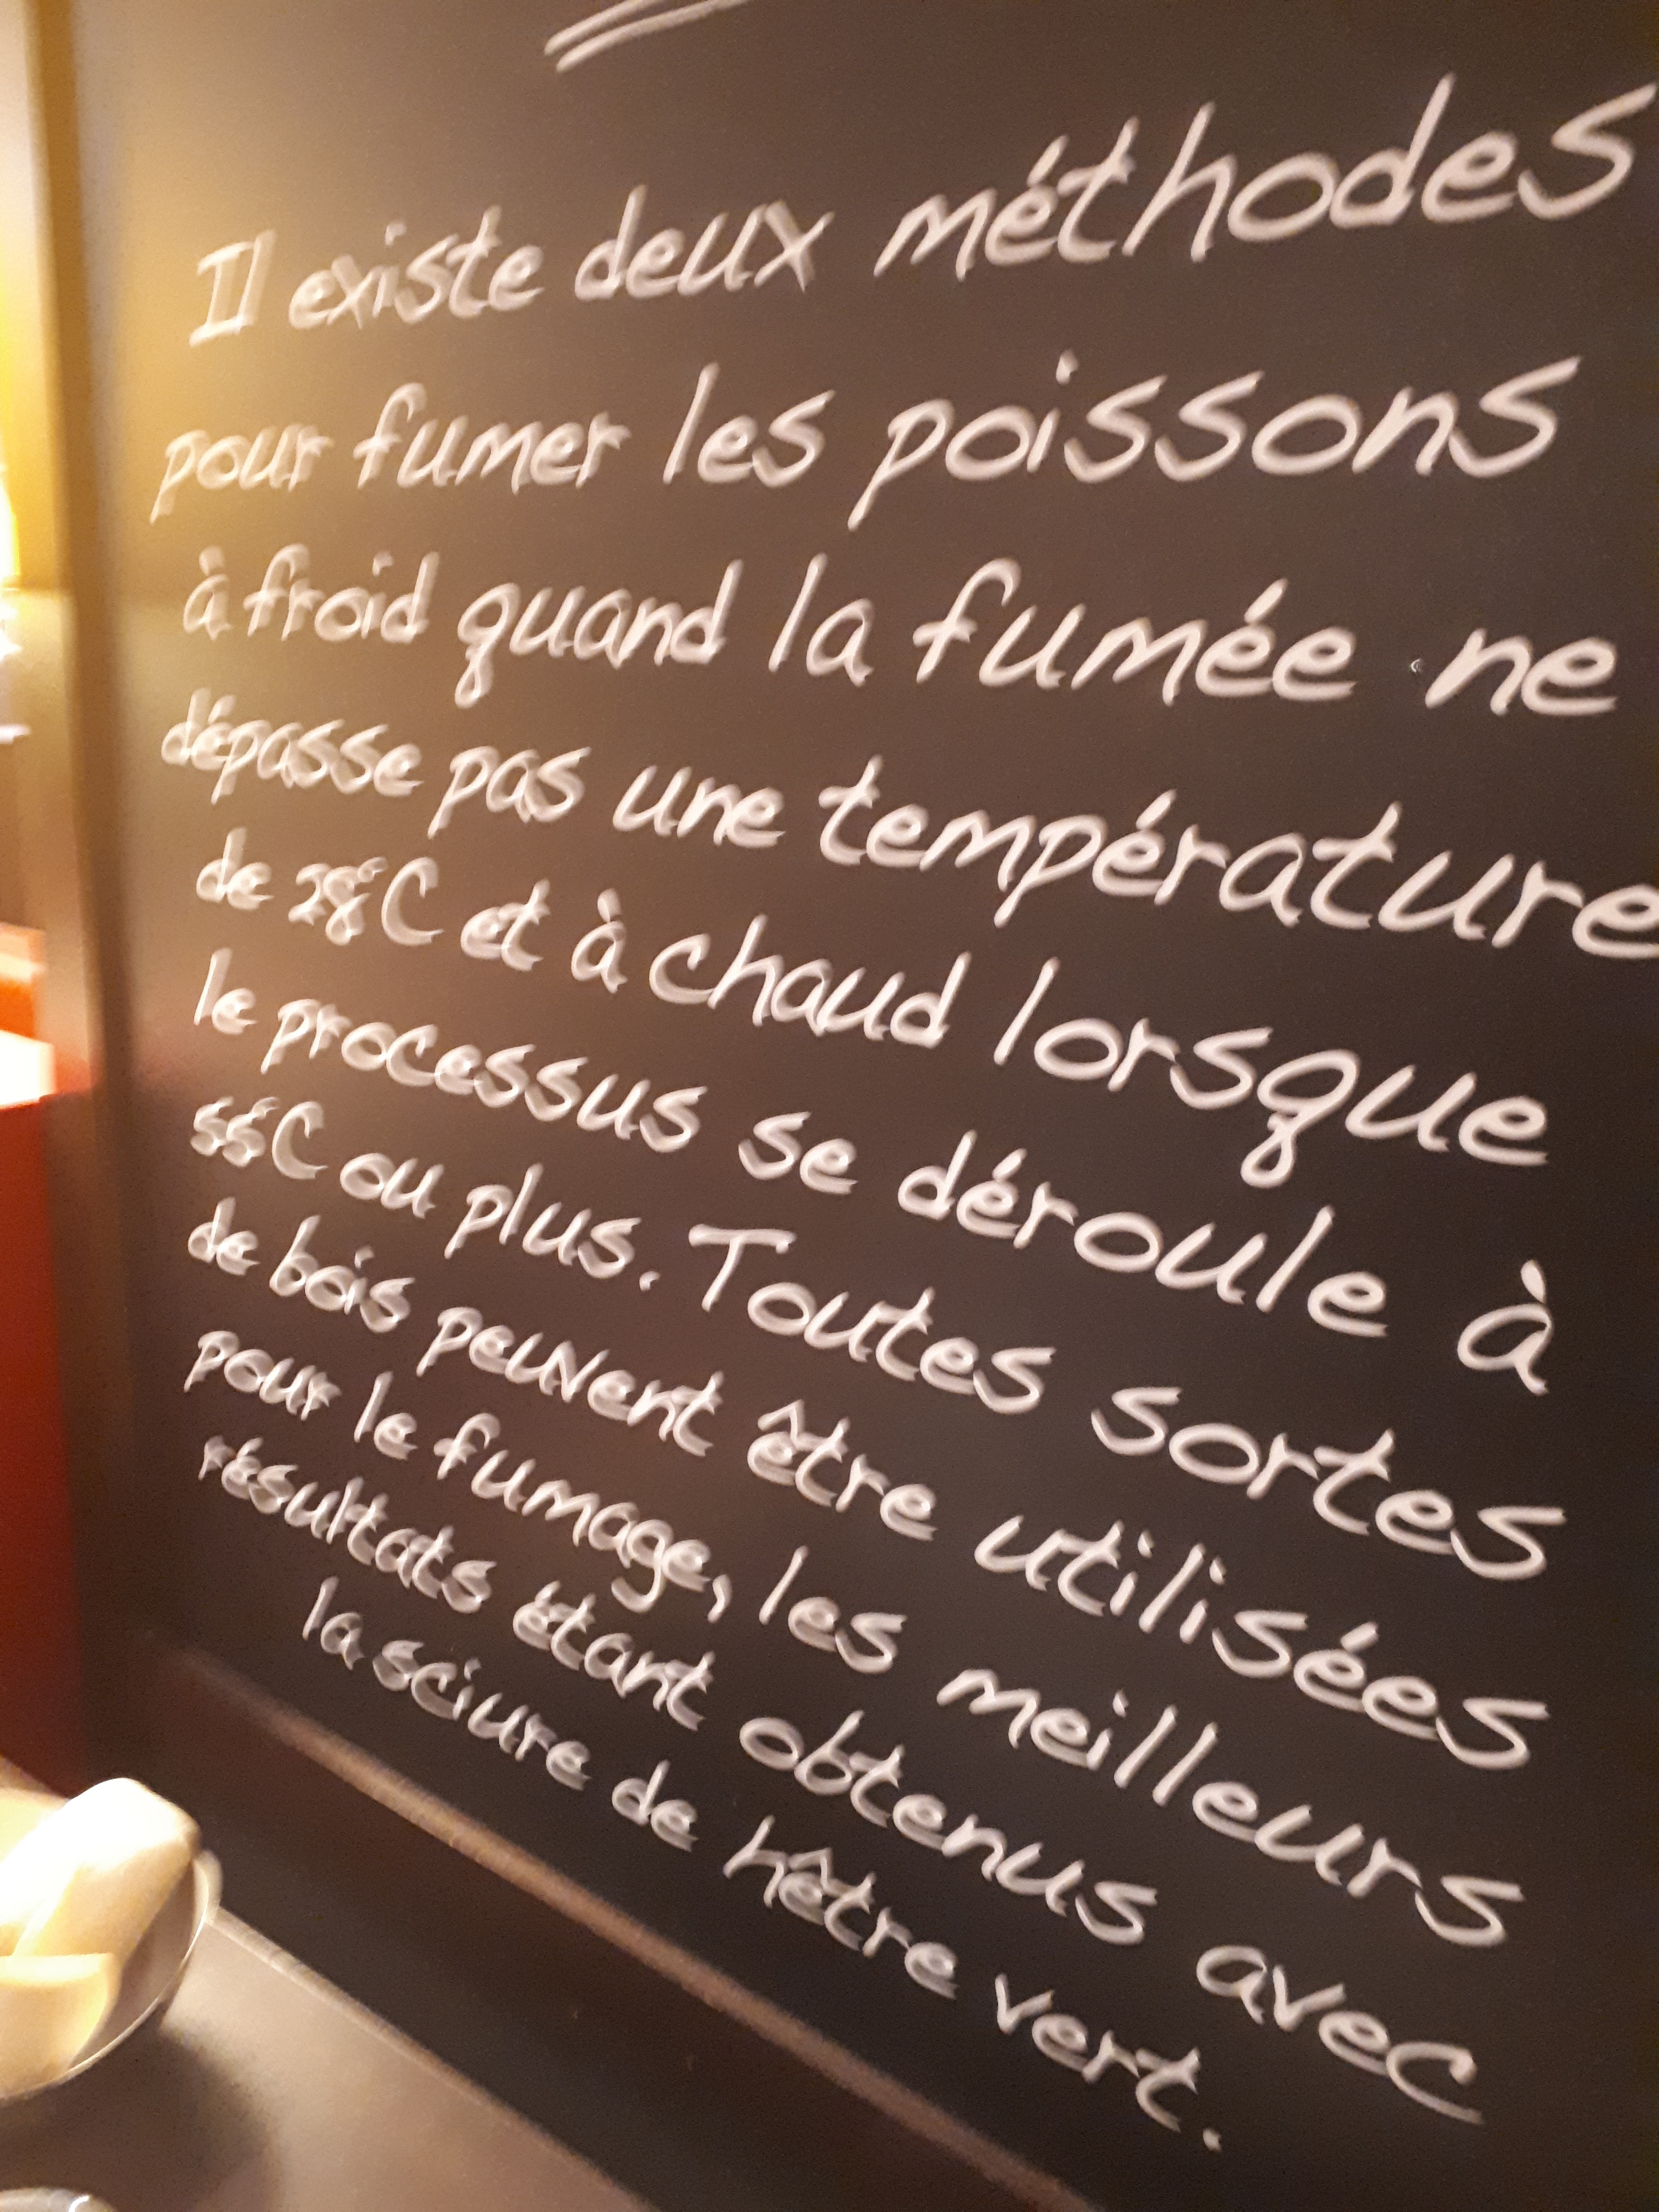 Il existe deux méthodes
pour fumer les poissons
à froid quand la fumée ne
dépasse pas une température
de 28°C et à chaud lorsque
le processus se déroule à
55°C ou plus. Toutes sortes
de bois peuvent être utilisées
pour le fumage, les meilleurs
résultats étant obtenus avec
la sciure de hêtre vert.